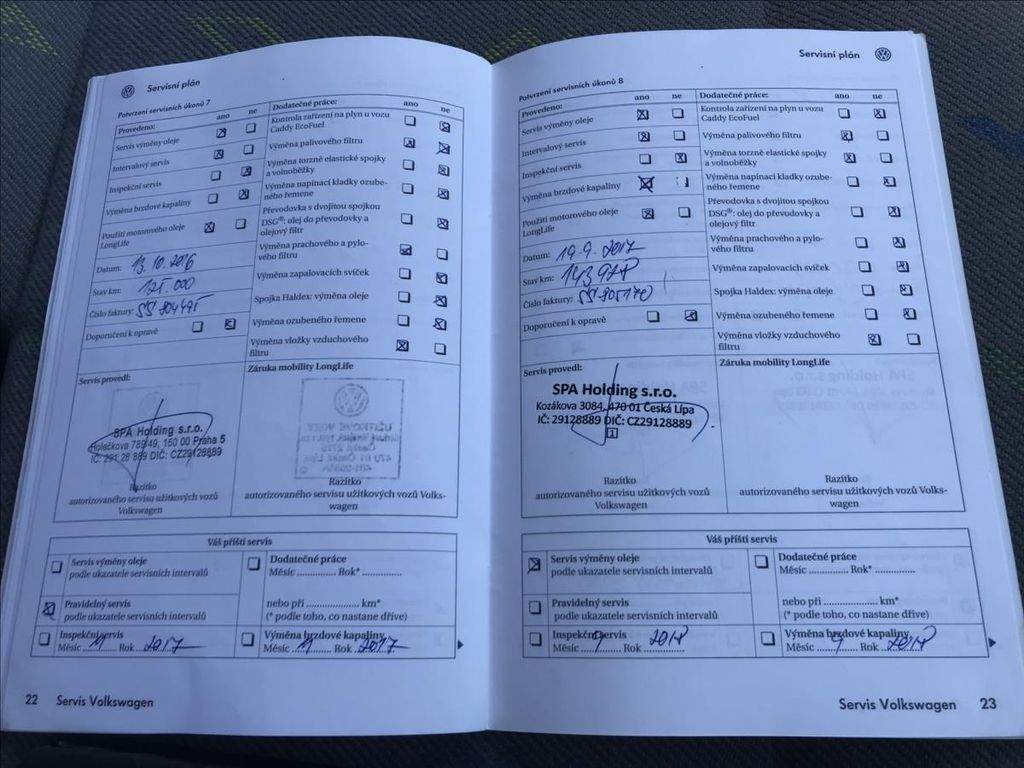 Servisní plán
Potvrzení servisních úkonů 7
Provedeno: ano ne
Servis výměny oleje
Intervalový servis
Inspekční servis
Výměna brzdové kapaliny
Použití motorového oleje
LongLife
Datum: 13.10.2016
Stav km: 125 000
Číslo faktury:
Doporučení k opravě
Dodatečné práce: ano ne
Kontrola zařízení na plyn u vozu
Caddy EcoFuel
Výměna palivového filtru
Výměna torzně elastické spojky
a volnoběžky
Výměna napínací kladky ozube-
ného řemene
Převodovka s dvojitou spojkou
DSG®: olej do převodovky a
olejový filtr
Výměna prachového a pylo-
vého filtru
Výměna zapalovacích svíček
Spojka Haldex: výměna oleje
Výměna ozubeného řemene
Výměna vložky vzduchového
filtru
Servis provedl:
SPA Holding s.r.o.
Holečkova 789/49, 150 00 Praha 5
IČ: 291 28 889 DIČ: CZ29128889
Razítko
autorizovaného servisu užitkových vozů
Volkswagen
Záruka mobility LongLife
Razítko
autorizovaného servisu užitkových vozů Volks-
wagen
Váš příští servis
Servis výměny oleje
podle ukazatele servisních intervalů
Pravidelný servis
podle ukazatele servisních intervalů
Inspekční servis
Měsíc 11 Rok 2017
Dodatečné práce
Měsíc .............. Rok* ..............
nebo při .................... km*
(* podle toho, co nastane dříve)
Výměna brzdové kapaliny
Měsíc 11 Rok 2017
22 Servis Volkswagen
Servisní plán
Potvrzení servisních úkonů 8
Provedeno: ano ne
Servis výměny oleje
Intervalový servis
Inspekční servis
Výměna brzdové kapaliny
Použití motorového oleje
LongLife
Datum: 19.9.2017
Stav km: 143 978
Číslo faktury:
Doporučení k opravě
Dodatečné práce: ano ne
Kontrola zařízení na plyn u vozu
Caddy EcoFuel
Výměna palivového filtru
Výměna torzně elastické spojky
a volnoběžky
Výměna napínací kladky ozube-
ného řemene
Převodovka s dvojitou spojkou
DSG®: olej do převodovky a
olejový filtr
Výměna prachového a pylo-
vého filtru
Výměna zapalovacích svíček
Spojka Haldex: výměna oleje
Výměna ozubeného řemene
Výměna vložky vzduchového
filtru
Servis provedl:
SPA Holding s.r.o.
Kozákova 3084, 470 01 Česká Lípa
IČ: 29128889 DIČ: CZ29128889
1
Razítko
autorizovaného servisu užitkových vozů
Volkswagen
Záruka mobility LongLife
Razítko
autorizovaného servisu užitkových vozů Volks-
wagen
Váš příští servis
Servis výměny oleje
podle ukazatele servisních intervalů
Pravidelný servis
podle ukazatele servisních intervalů
Inspekční servis
Měsíc 9 Rok 2018
Dodatečné práce
Měsíc .............. Rok* ..............
nebo při .................... km*
(* podle toho, co nastane dříve)
Výměna brzdové kapaliny
Měsíc 9 Rok 2018
Servis Volkswagen 23